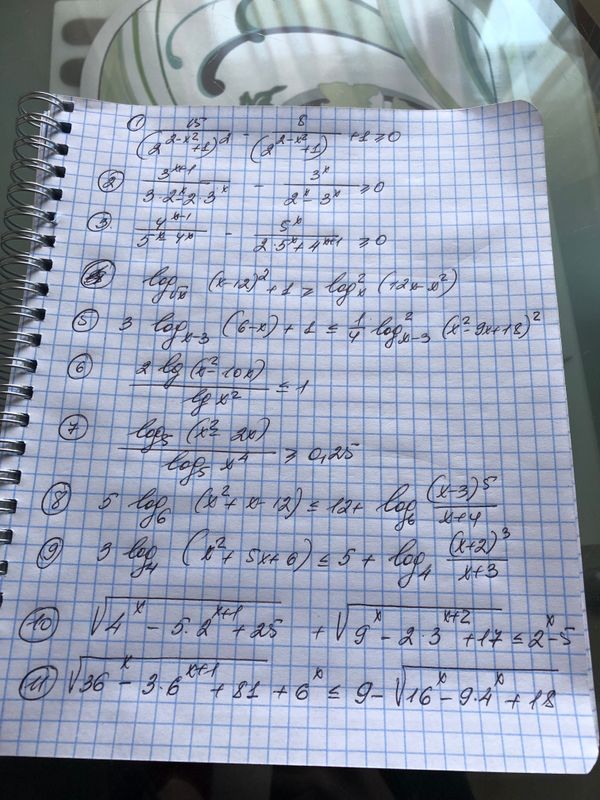 ① 15/(2^(2-x²)+1)² - 8/(2^(2-x²)+1) + 1 ≥ 0
② 3^(x+1)/(3·2^x-2·3^x) - 3^x/(2^x-3^x) ≥ 0
③ 4^(x-1)/(5^x-4^x) - 5^x/(2·5^x+4^(x+1)) ≥ 0
④ log_√x (x-12)² + 1 ≥ log²_x (12x-x²)
⑤ 3 log_(x-3) (6-x) + 1 ≤ 1/4 log²_(x-3) (x²-9x+18)²
⑥ 2 lg (x²-10x)/lg x² ≤ 1
⑦ log₅ (x²-2x)/log₅ x⁴ ≥ 0,25
⑧ 5 log₆ (x²+x-12) ≤ 12+ log₆ (x-3)⁵/(x+4)
⑨ 3 log₄ (x²+5x+6) ≤ 5 + log₄ (x+2)³/(x+3)
⑩ √(4^x - 5·2^(x+1) + 25) + √(9^x - 2·3^(x+2) + 17) ≤ 2^x-5
⑪ √(36^x - 3·6^(x+1) + 81) + 6^x ≤ 9-√(16^x - 9·4^x + 18)